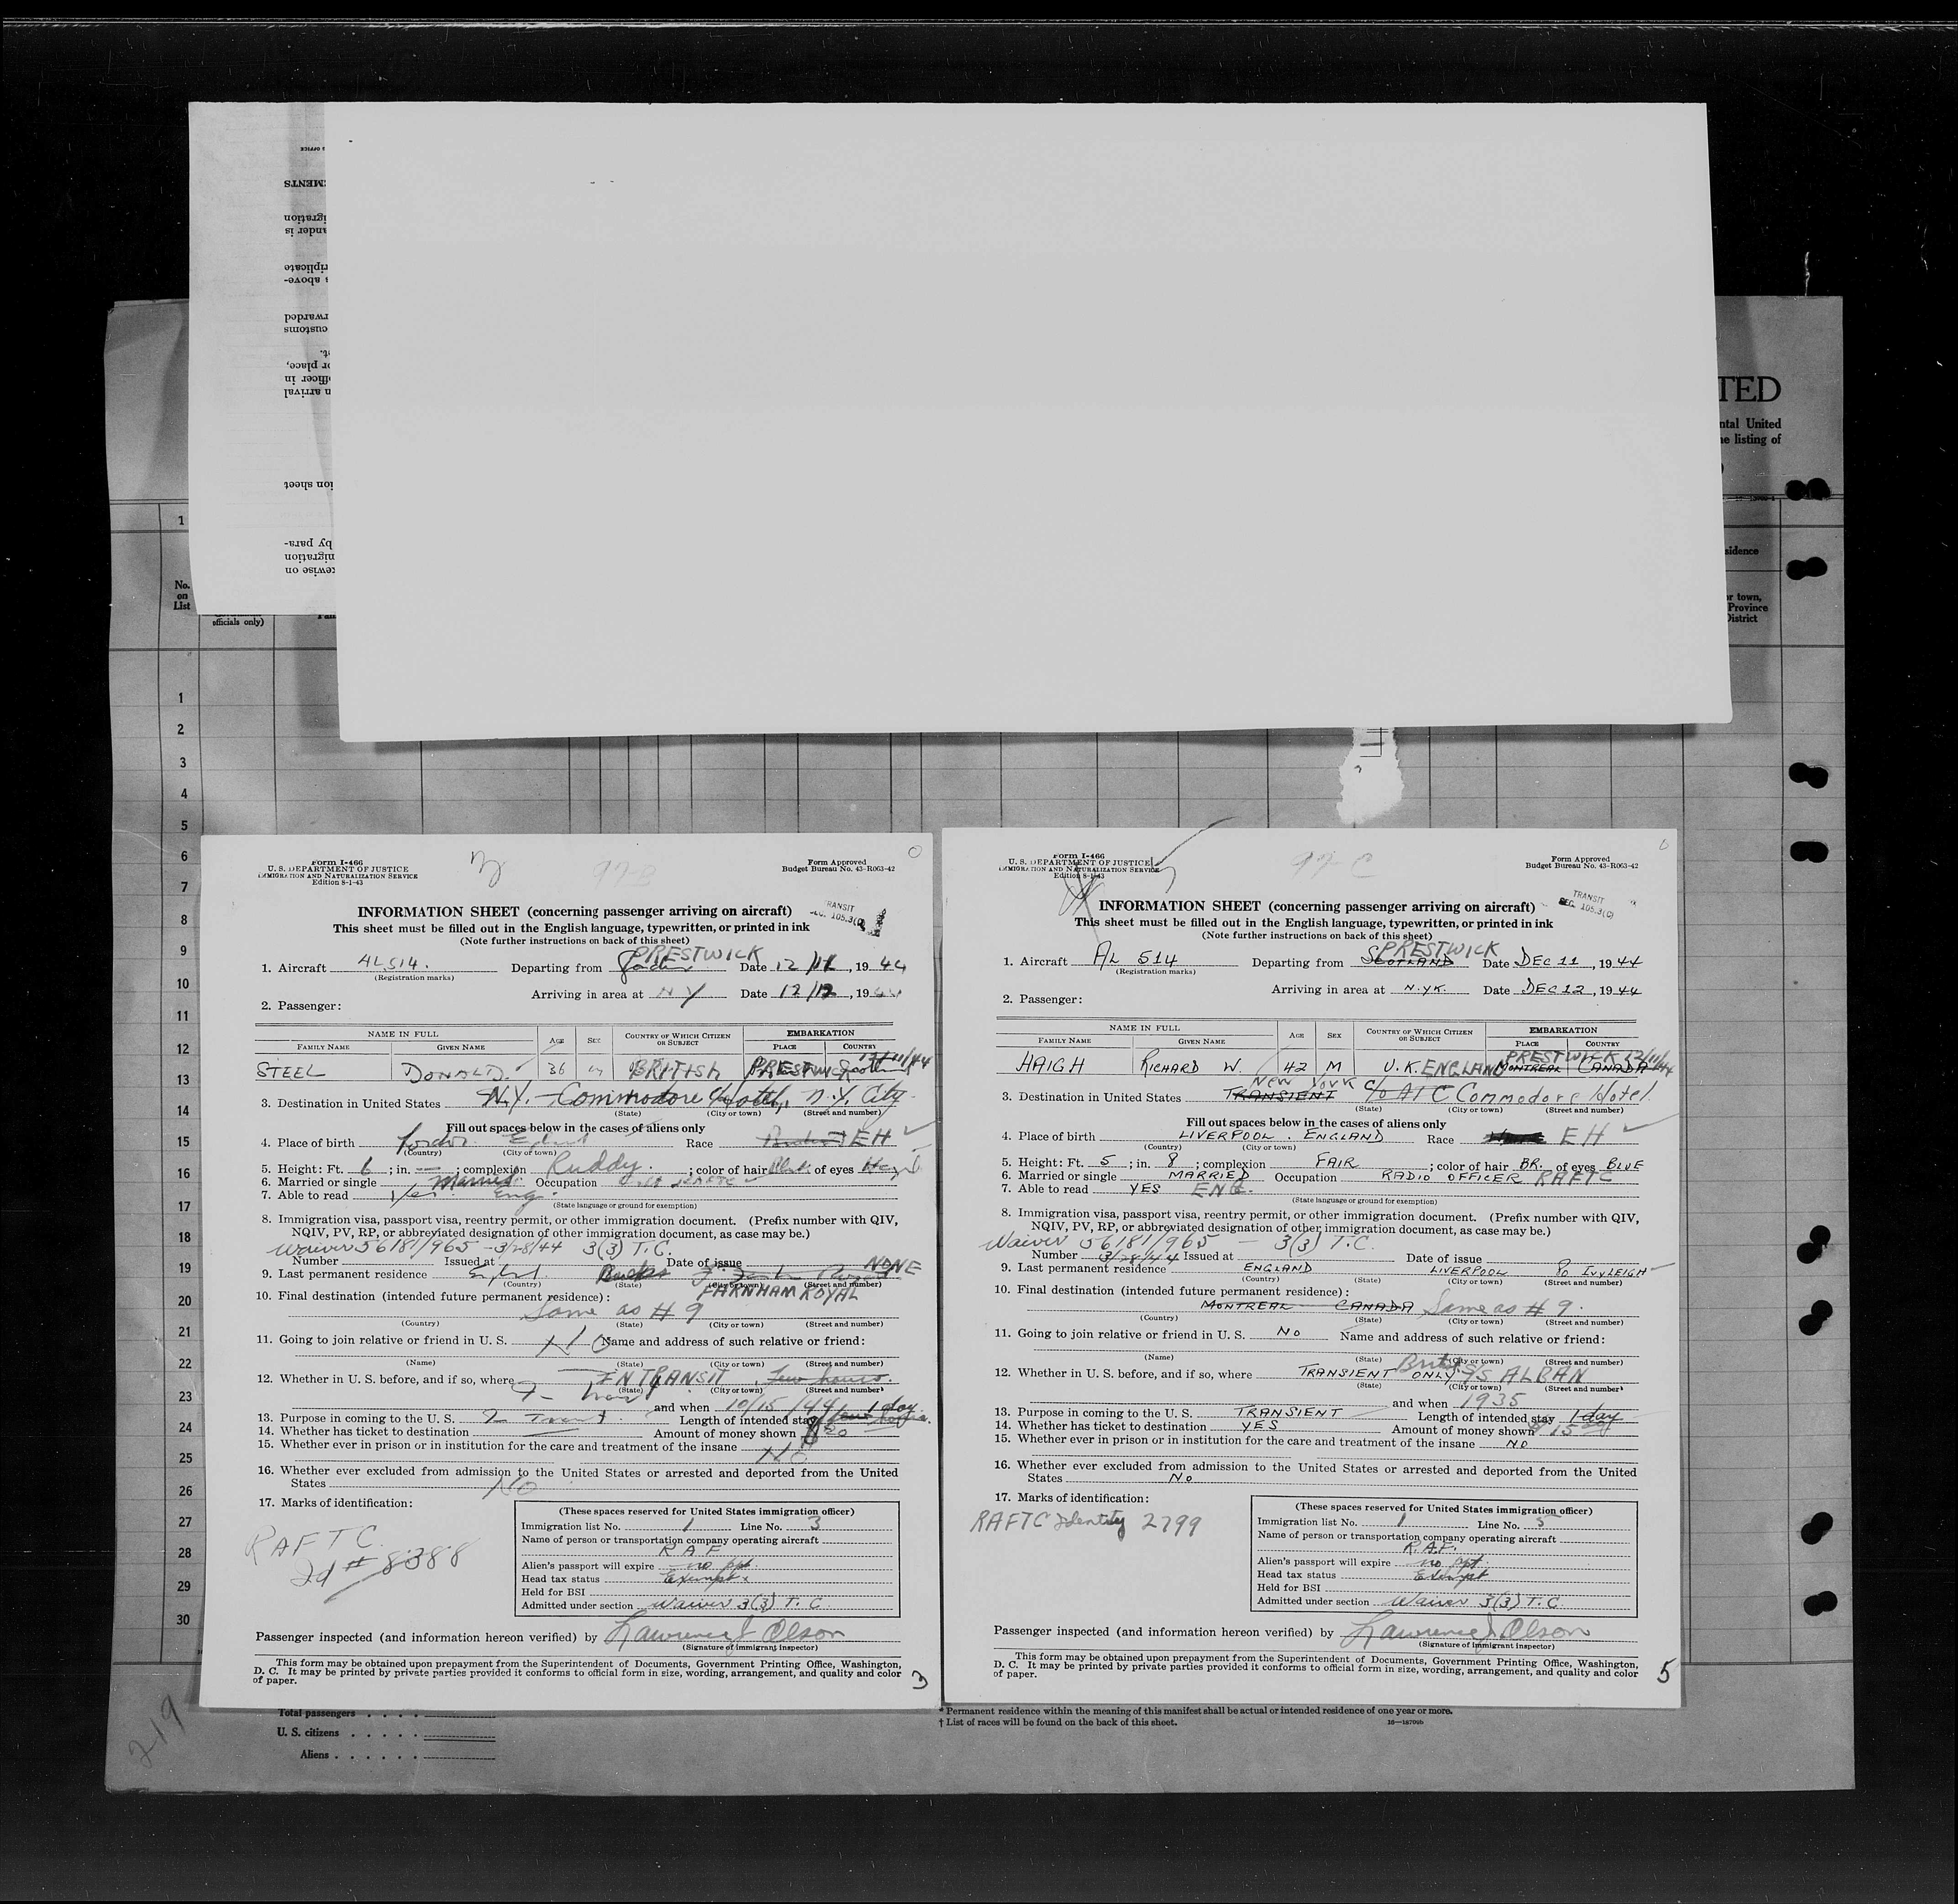 TED
ntal United
ne listing of
sidence
or town,
Province
District
No.
on
List
officials only)
1
1
2
3
4
5
6
7
8
9
10
11
12
13
14
15
16
17
18
19
20
21
22
23
24
25
26
27
28
29
30
Form I-466
U. S. DEPARTMENT OF JUSTICE
IMMIGRATION AND NATURALIZATION SERVICE
Edition 8-1-43
97-B
Form Approved
Budget Bureau No. 43-R063-42
INFORMATION SHEET (concerning passenger arriving on aircraft)
TRANSIT
SEC. 105.3(C)
This sheet must be filled out in the English language, typewritten, or printed in ink
(Note further instructions on back of this sheet)
PRESTWICK
1. Aircraft AL514. Departing from Date 12/11, 1944
(Registration marks)
Arriving in area at NY Date 12/12, 1944
2. Passenger:
NAME IN FULL AGE SEX COUNTRY OF WHICH CITIZEN OR SUBJECT EMBARKATION
FAMILY NAME GIVEN NAME PLACE COUNTRY
STEEL DONALD. 36 M BRITISH PRESTWICK Scotland 12/11/44
3. Destination in United States N.Y. - Commodore Hotel, N.Y. City
(State) (City or town) (Street and number)
Fill out spaces below in the cases of aliens only
4. Place of birth England Race EH
(Country) (City or town)
5. Height: Ft. 6; in. —; complexion Ruddy.; color of hair Blk. of eyes Hazel
6. Married or single Married Occupation RAFTC
7. Able to read Yes Eng.
(State language or ground for exemption)
8. Immigration visa, passport visa, reentry permit, or other immigration document. (Prefix number with QIV,
NQIV, PV, RP, or abbreviated designation of other immigration document, as case may be.)
Waiver 56181/965 - 3/28/44 3(3) T.C.
Number Issued at Date of issue NONE
9. Last permanent residence England. Bucks
(Country) (State) (City or town) (Street and number)
FARNHAM ROYAL
10. Final destination (intended future permanent residence):
Same as # 9
(Country) (State) (City or town) (Street and number)
11. Going to join relative or friend in U. S. No Name and address of such relative or friend:
(Name) (State) (City or town) (Street and number)
12. Whether in U. S. before, and if so, where IN TRANSIT Few hours
(State) (City or town) (Street and number)
and when 10/15/44
13. Purpose in coming to the U. S. Length of intended stay 1 day
14. Whether has ticket to destination Amount of money shown
15. Whether ever in prison or in institution for the care and treatment of the insane No
16. Whether ever excluded from admission to the United States or arrested and deported from the United
States No
17. Marks of identification:
RAFTC
Id # 8388
(These spaces reserved for United States immigration officer)
Immigration list No. 1 Line No. 3
Name of person or transportation company operating aircraft
RAF
Alien's passport will expire no ppt.
Head tax status Exempt
Held for BSI
Admitted under section Waiver 3(3) T.C.
Passenger inspected (and information hereon verified) by Lawrence J Olson
(Signature of immigrant inspector)
This form may be obtained upon prepayment from the Superintendent of Documents, Government Printing Office, Washington,
D. C. It may be printed by private parties provided it conforms to official form in size, wording, arrangement, and quality and color
of paper.
3
Form I-466
U. S. DEPARTMENT OF JUSTICE
IMMIGRATION AND NATURALIZATION SERVICE
Edition 8-1-43
97-C
Form Approved
Budget Bureau No. 43-R063-42
INFORMATION SHEET (concerning passenger arriving on aircraft)
TRANSIT
SEC. 105.3(C)
This sheet must be filled out in the English language, typewritten, or printed in ink
(Note further instructions on back of this sheet)
PRESTWICK
1. Aircraft AL 514 Departing from SCOTLAND Date DEC 11, 1944
(Registration marks)
Arriving in area at N.YK. Date DEC 12, 1944
2. Passenger:
NAME IN FULL AGE SEX COUNTRY OF WHICH CITIZEN OR SUBJECT EMBARKATION
FAMILY NAME GIVEN NAME PLACE COUNTRY
PRESTWICK 12/11/44
HAIGH RICHARD W. 42 M U.K. ENGLAND MONTREAL CANADA
NEW YORK
3. Destination in United States TRANSIENT C/o ATC Commodore Hotel
(State) (City or town) (Street and number)
Fill out spaces below in the cases of aliens only
4. Place of birth LIVERPOOL. ENGLAND Race EH
(Country) (City or town)
5. Height: Ft. 5; in. 8; complexion FAIR; color of hair BR. of eyes BLUE
6. Married or single MARRIED Occupation RADIO OFFICER RAFTC
7. Able to read YES ENG.
(State language or ground for exemption)
8. Immigration visa, passport visa, reentry permit, or other immigration document. (Prefix number with QIV,
NQIV, PV, RP, or abbreviated designation of other immigration document, as case may be.)
Waiver 56181/965 — 3(3) T.C.
Number 3/28/44 Issued at Date of issue
9. Last permanent residence ENGLAND LIVERPOOL IVYLEIGH
(Country) (State) (City or town) (Street and number)
10. Final destination (intended future permanent residence):
MONTREAL CANADA Same as # 9.
(Country) (State) (City or town) (Street and number)
11. Going to join relative or friend in U. S. No Name and address of such relative or friend:
(Name) (State) (City or town) (Street and number)
12. Whether in U. S. before, and if so, where TRANSIENT ONLY S/S ALBAN
(State) (City or town) (Street and number)
and when 1935
13. Purpose in coming to the U. S. TRANSIENT Length of intended stay 1 day
14. Whether has ticket to destination YES Amount of money shown
15. Whether ever in prison or in institution for the care and treatment of the insane NO
16. Whether ever excluded from admission to the United States or arrested and deported from the United
States No
17. Marks of identification:
RAFTC Identity 2799
(These spaces reserved for United States immigration officer)
Immigration list No. 1 Line No. 5
Name of person or transportation company operating aircraft
R.A.F.
Alien's passport will expire no ppt.
Head tax status Exempt
Held for BSI
Admitted under section Waiver 3(3) T.C.
Passenger inspected (and information hereon verified) by Lawrence J Olson
(Signature of immigrant inspector)
This form may be obtained upon prepayment from the Superintendent of Documents, Government Printing Office, Washington,
D. C. It may be printed by private parties provided it conforms to official form in size, wording, arrangement, and quality and color
of paper.
5
Total passengers
U. S. citizens
Aliens
* Permanent residence within the meaning of this manifest shall be actual or intended residence of one year or more.
† List of races will be found on the back of this sheet.